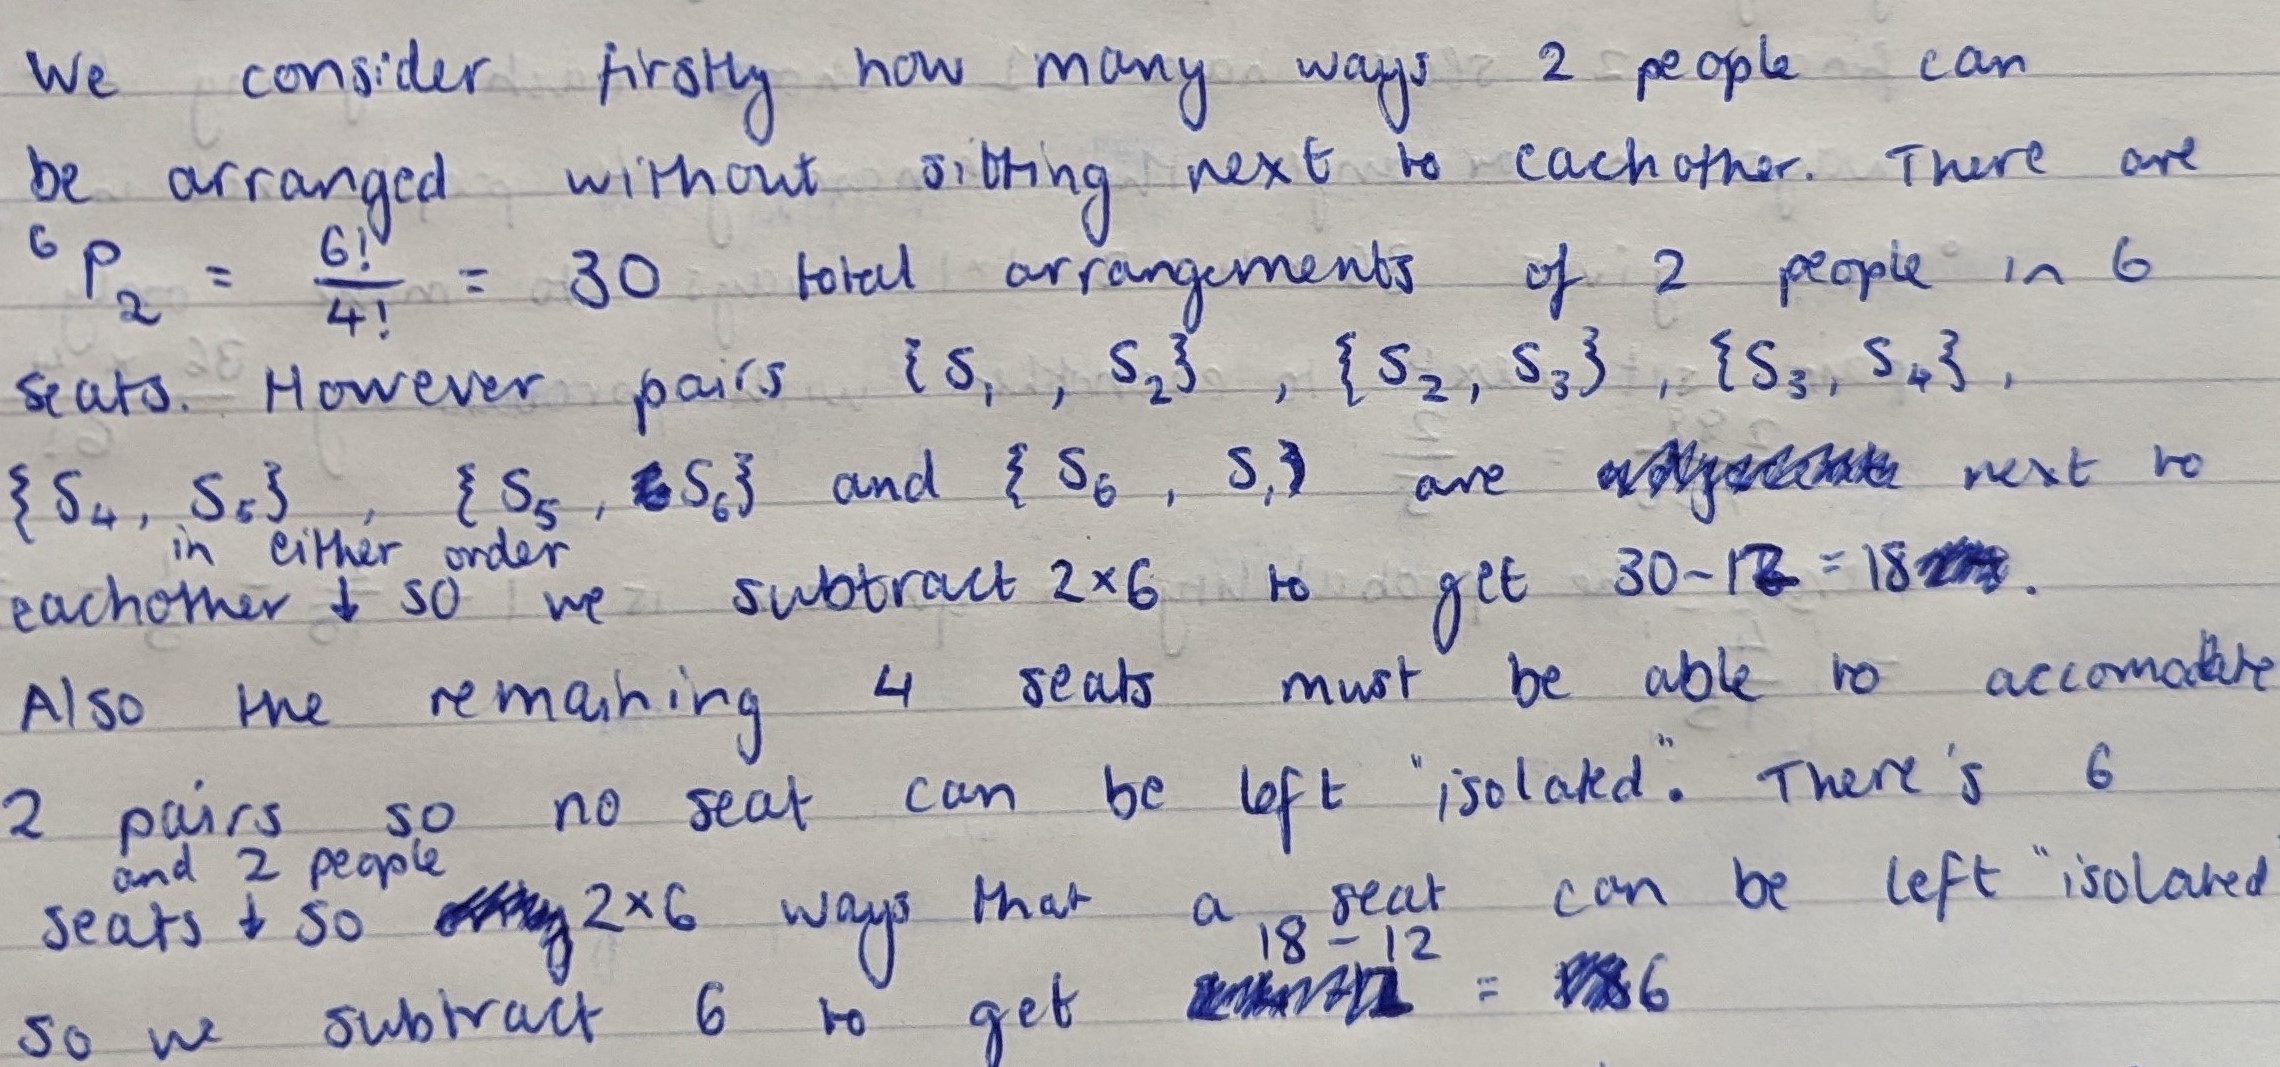 We consider firstly how many ways 2 people can
be arranged without sitting next to eachother. There are
⁶P₂ = 6!/4! = 30 total arrangements of 2 people in 6
seats. However pairs {S₁, S₂}, {S₂, S₃}, {S₃, S₄},
{S₄, S₅}, {S₅, S₆} and {S₆, S₁} are next to
in either order
eachother ↓ so we subtract 2×6 to get 30-12 = 18.
Also the remaining 4 seats must be able to accomodate
2 pairs so no seat can be left "isolated". There's 6
and 2 people
seats ↓ so 2×6 ways that a seat can be left "isolated
18 - 12
so we subtract 6 to get = 6